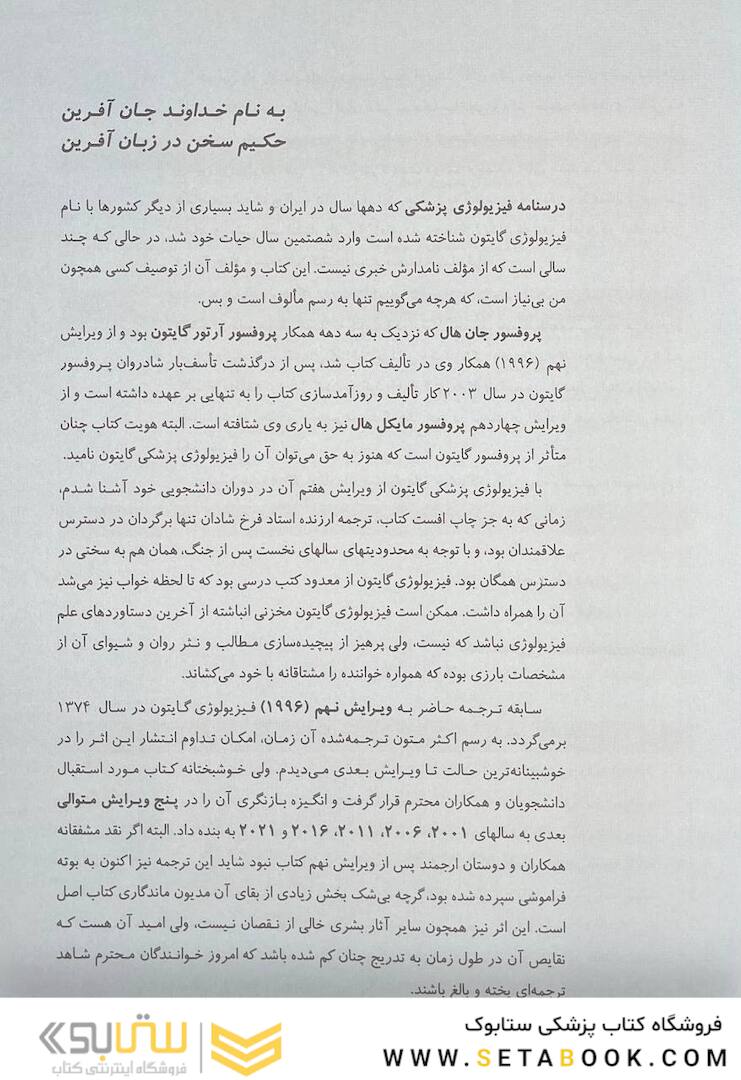 به نام خداوند جان آفرین
حکیم سخن در زبان آفرین
درسنامه فیزیولوژی پزشکی که دهها سال در ایران و شاید بسیاری از دیگر کشورها با نام
فیزیولوژی گایتون شناخته شده است وارد شصتمین سال حیات خود شد، در حالی که چند
سالی است که از مؤلف نامدارش خبری نیست. این کتاب و مؤلف آن از توصیف کسی همچون
من بی‌نیاز است، که هرچه می‌گوییم تنها به رسم مألوف است و بس.
پروفسور جان هال که نزدیک به سه دهه همکار پروفسور آرتور گایتون بود و از ویرایش
نهم (۱۹۹۶) همکار وی در تألیف کتاب شد، پس از درگذشت تأسف‌بار شادروان پروفسور
گایتون در سال ۲۰۰۳ کار تألیف و روزآمدسازی کتاب را به تنهایی بر عهده داشته است و از
ویرایش چهاردهم پروفسور مایکل هال نیز به یاری وی شتافته است. البته هویت کتاب چنان
متأثر از پروفسور گایتون است که هنوز به حق می‌توان آن را فیزیولوژی پزشکی گایتون نامید.
با فیزیولوژی پزشکی گایتون از ویرایش هفتم آن در دوران دانشجویی خود آشنا شدم،
زمانی که به جز چاپ افست کتاب، ترجمه ارزنده استاد فرخ شادان تنها برگردان در دسترس
علاقمندان بود، و با توجه به محدودیتهای سالهای نخست پس از جنگ، همان هم به سختی در
دسترس همگان بود. فیزیولوژی گایتون از معدود کتب درسی بود که تا لحظه خواب نیز می‌شد
آن را همراه داشت. ممکن است فیزیولوژی گایتون مخزنی انباشته از آخرین دستاوردهای علم
فیزیولوژی نباشد که نیست، ولی پرهیز از پیچیده‌سازی مطالب و نثر روان و شیوای آن از
مشخصات بارزی بوده که همواره خواننده را مشتاقانه با خود می‌کشاند.
سابقه ترجمه حاضر به ویرایش نهم (۱۹۹۶) فیزیولوژی گایتون در سال ۱۳۷۴
برمی‌گردد. به رسم اکثر متون ترجمه‌شده آن زمان، امکان تداوم انتشار این اثر را در
خوشبینانه‌ترین حالت تا ویرایش بعدی می‌دیدم. ولی خوشبختانه کتاب مورد استقبال
دانشجویان و همکاران محترم قرار گرفت و انگیزه بازنگری آن را در پنج ویرایش متوالی
بعدی به سالهای ۲۰۰۱، ۲۰۰۶، ۲۰۱۱، ۲۰۱۶ و ۲۰۲۱ به بنده داد. البته اگر نقد مشفقانه
همکاران و دوستان ارجمند پس از ویرایش نهم کتاب نبود شاید این ترجمه نیز اکنون به بوته
فراموشی سپرده شده بود، گرچه بی‌شک بخش زیادی از بقای آن مدیون ماندگاری کتاب اصل
است. این اثر نیز همچون سایر آثار بشری خالی از نقصان نیست، ولی امید آن هست که
نقایص آن در طول زمان به تدریج چنان کم شده باشد که امروز خوانندگان محترم شاهد
ترجمه‌ای پخته و بالغ باشند.
فروشگاه کتاب پزشکی ستابوک
WWW.SETABOOK.COM
ستابوک
فروشگاه اینترنتی کتاب